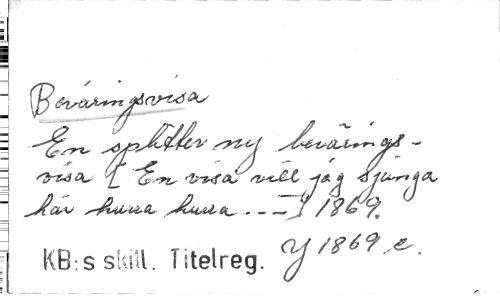 Beväringsvisa
En splitter ny bevärings-
visa [En visa vill jag sjunga
här hurra hurra . . --] 1869.
KB:s skill. Titelreg. Y 1869 c.